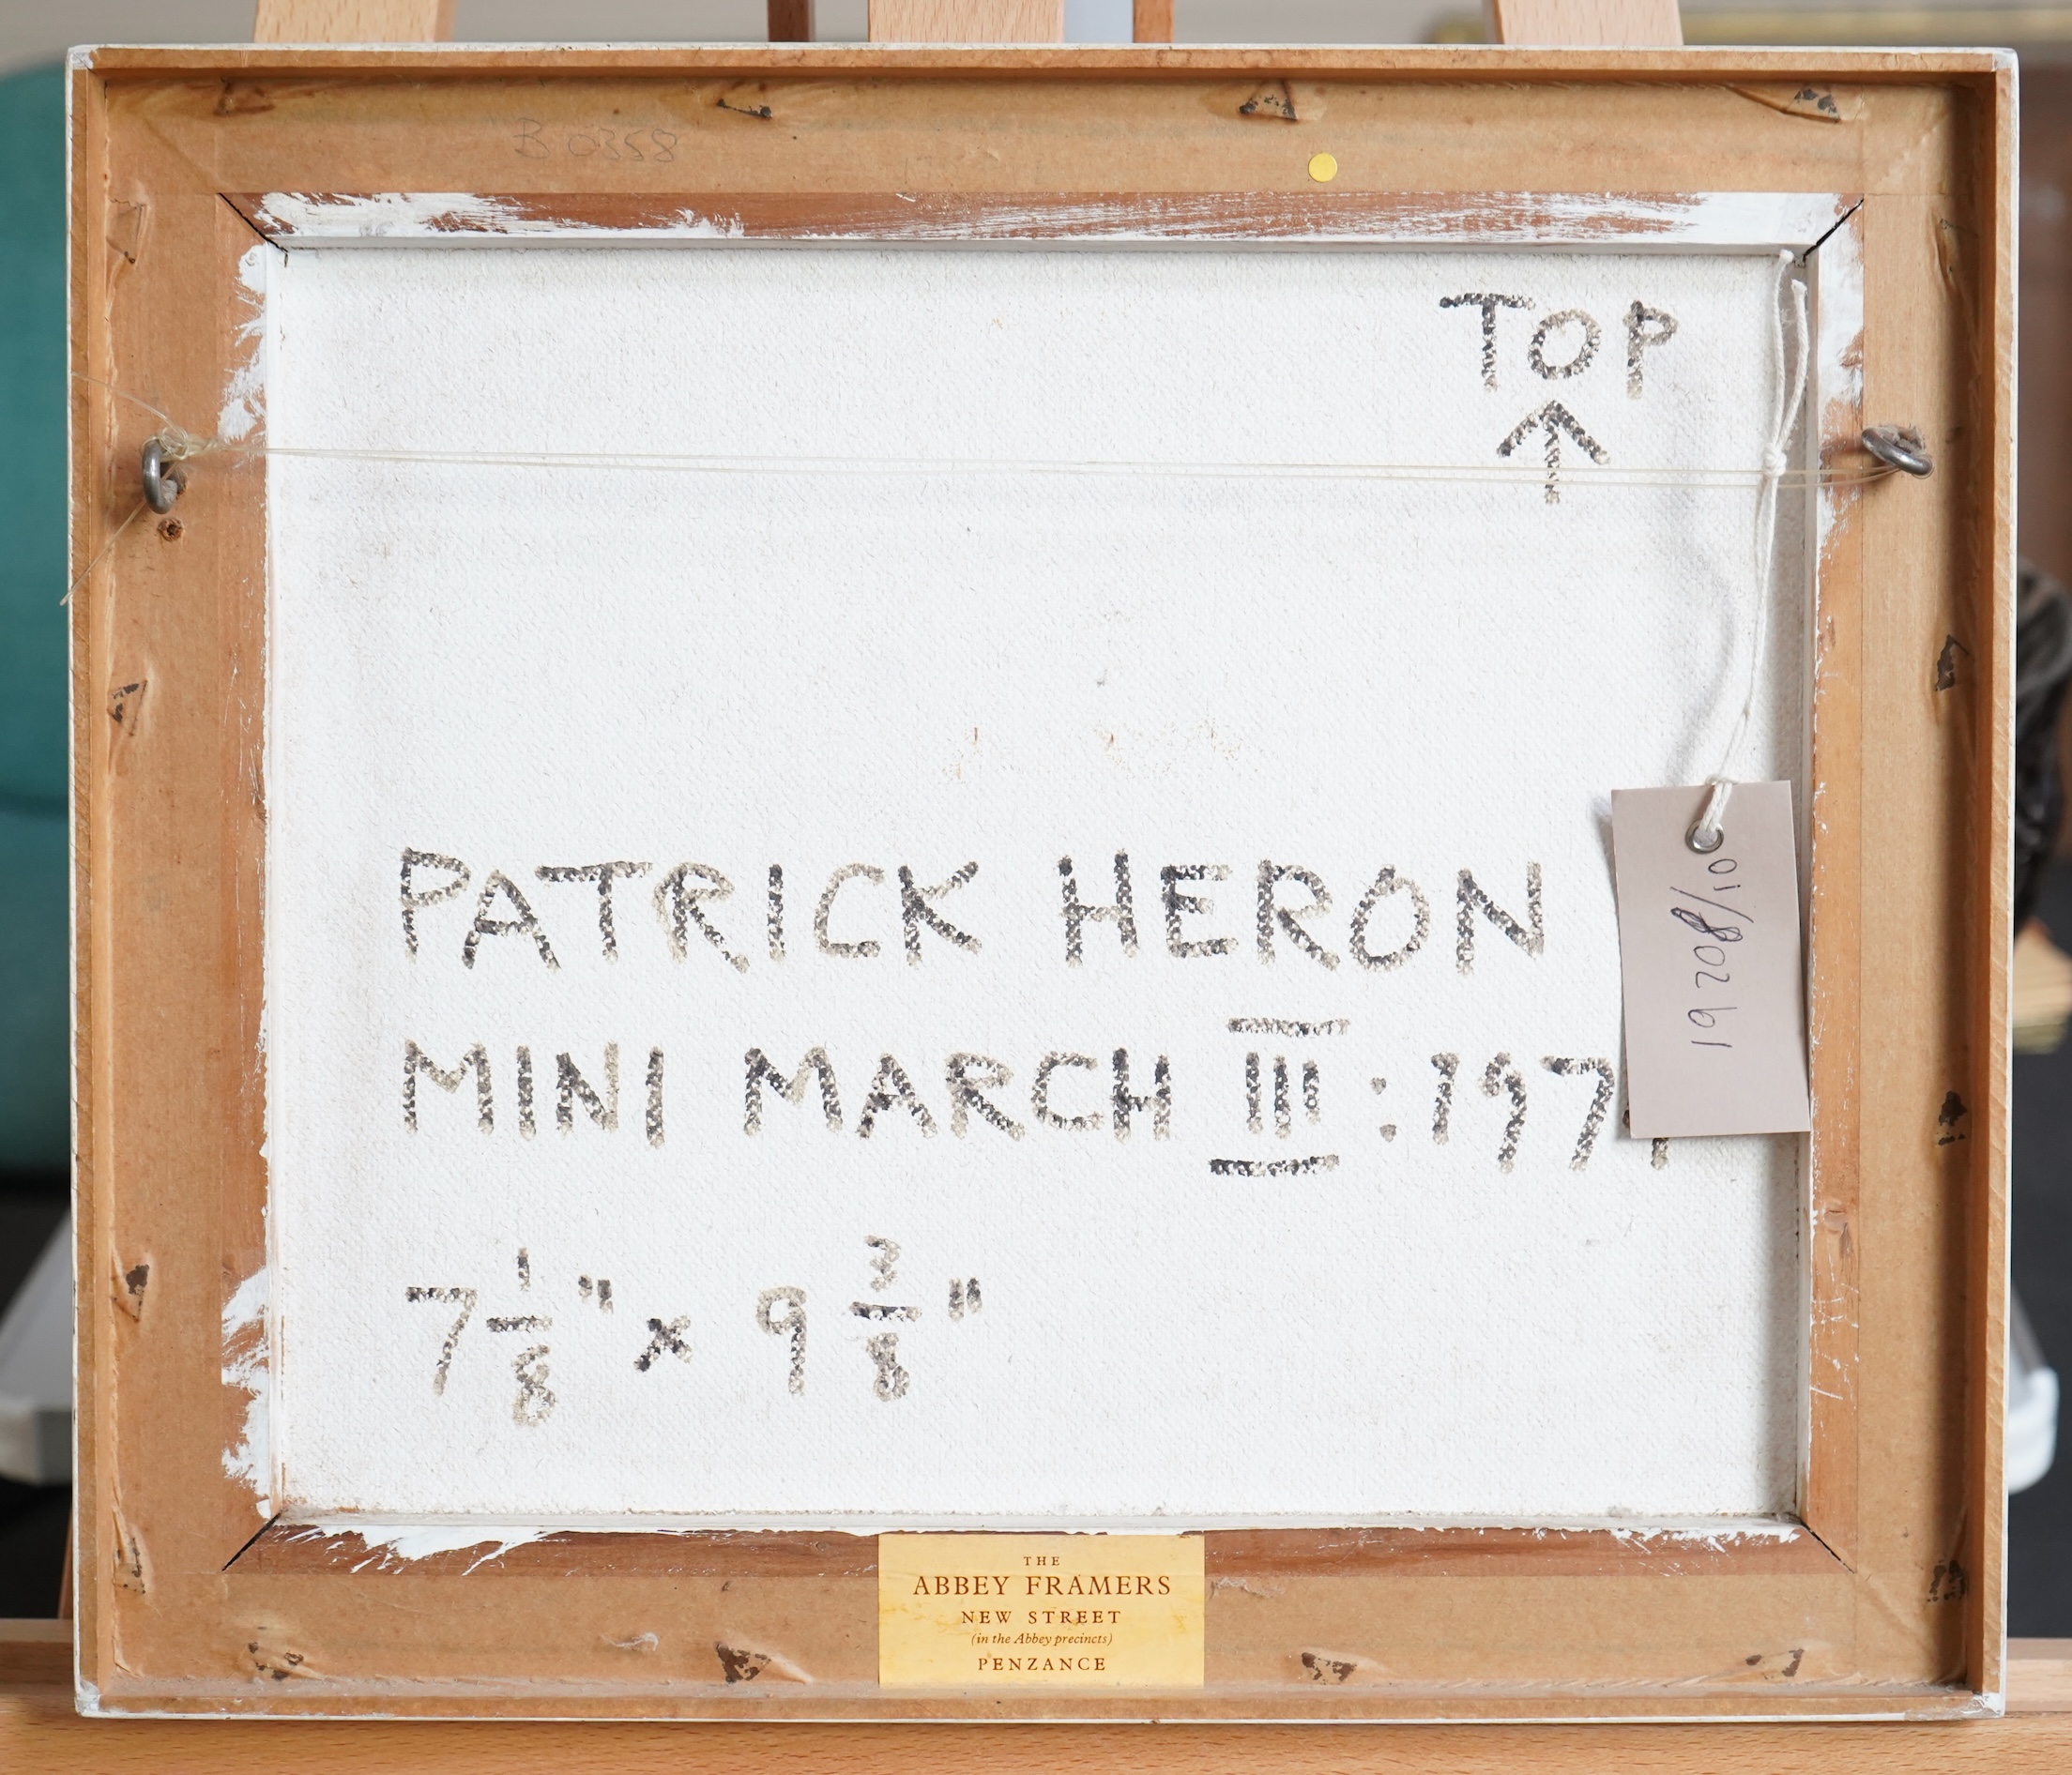 B 0358
TOP
↑
PATRICK HERON
MINI MARCH III : 197
7 1/8" x 9 3/8"
19208/10
THE
ABBEY FRAMERS
NEW STREET
(in the Abbey precincts)
PENZANCE